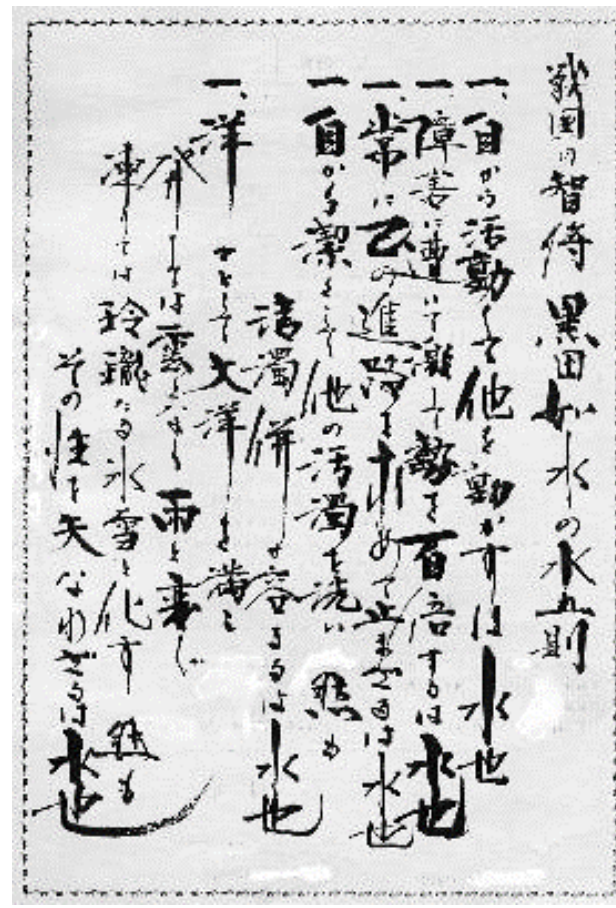 戦国の智将 黒田如水の水五則
一、自から活動して他を動かすは水也
一、障害に遭いて激して勢を百倍するは水也
一、常に己の進路を求めて止まざるは水也
一、自から潔くして他の汚濁を洗い 然も
清濁併せ容るるは水也
一、洋々として大洋を満し
発しては雲となり雨と変じ
凍しては玲瓏たる氷雪と化す 然も
その性を失なわざるは水也